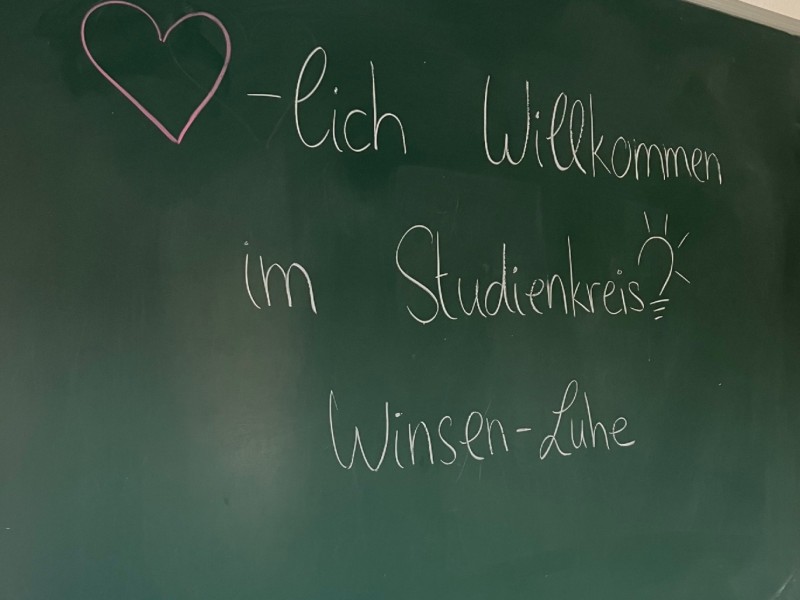 -lich Willkommen
im Studienkreis
Winsen-Luhe